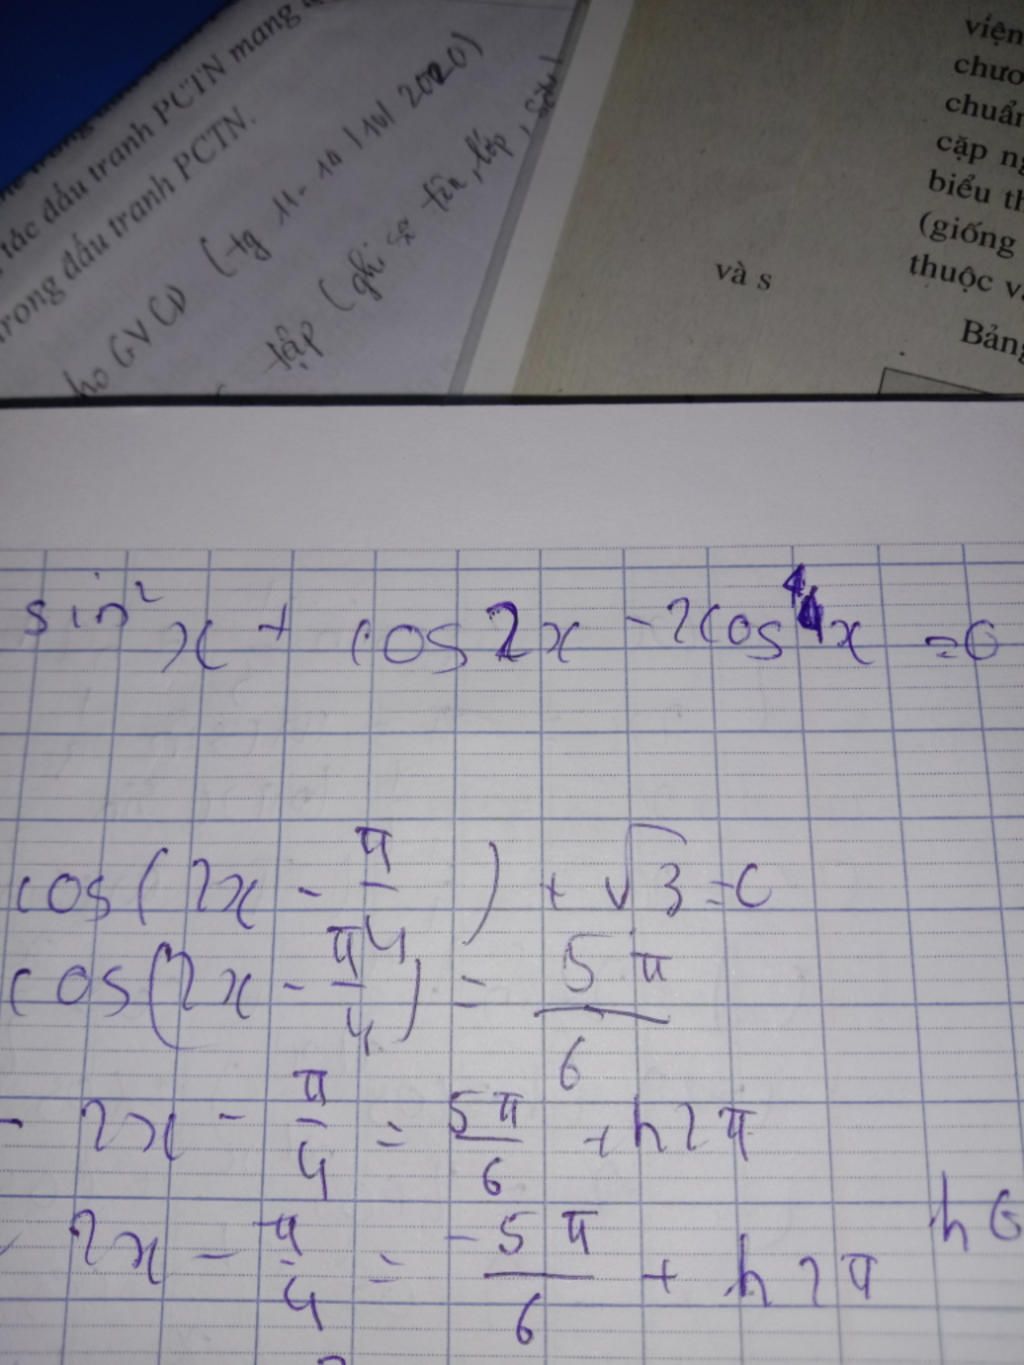 tác đấu tranh PCTN mang
trong đấu tranh PCTN.
ho GVCD (tg 11-
2020)
tập (ghi tên, lớp,
và s
viện
chươ
chuẩn
cặp ng
biểu th
(giống
thuộc v
Bảng
sin²x + cos2x - 2cos⁴x = 0
cos(2x - π/4) + √3 = 0
cos(2x - π/4) = 5π/6
2x - π/4 = 5π/6 + h2π
2x - π/4 = -5π/6 + h2π
h ∈